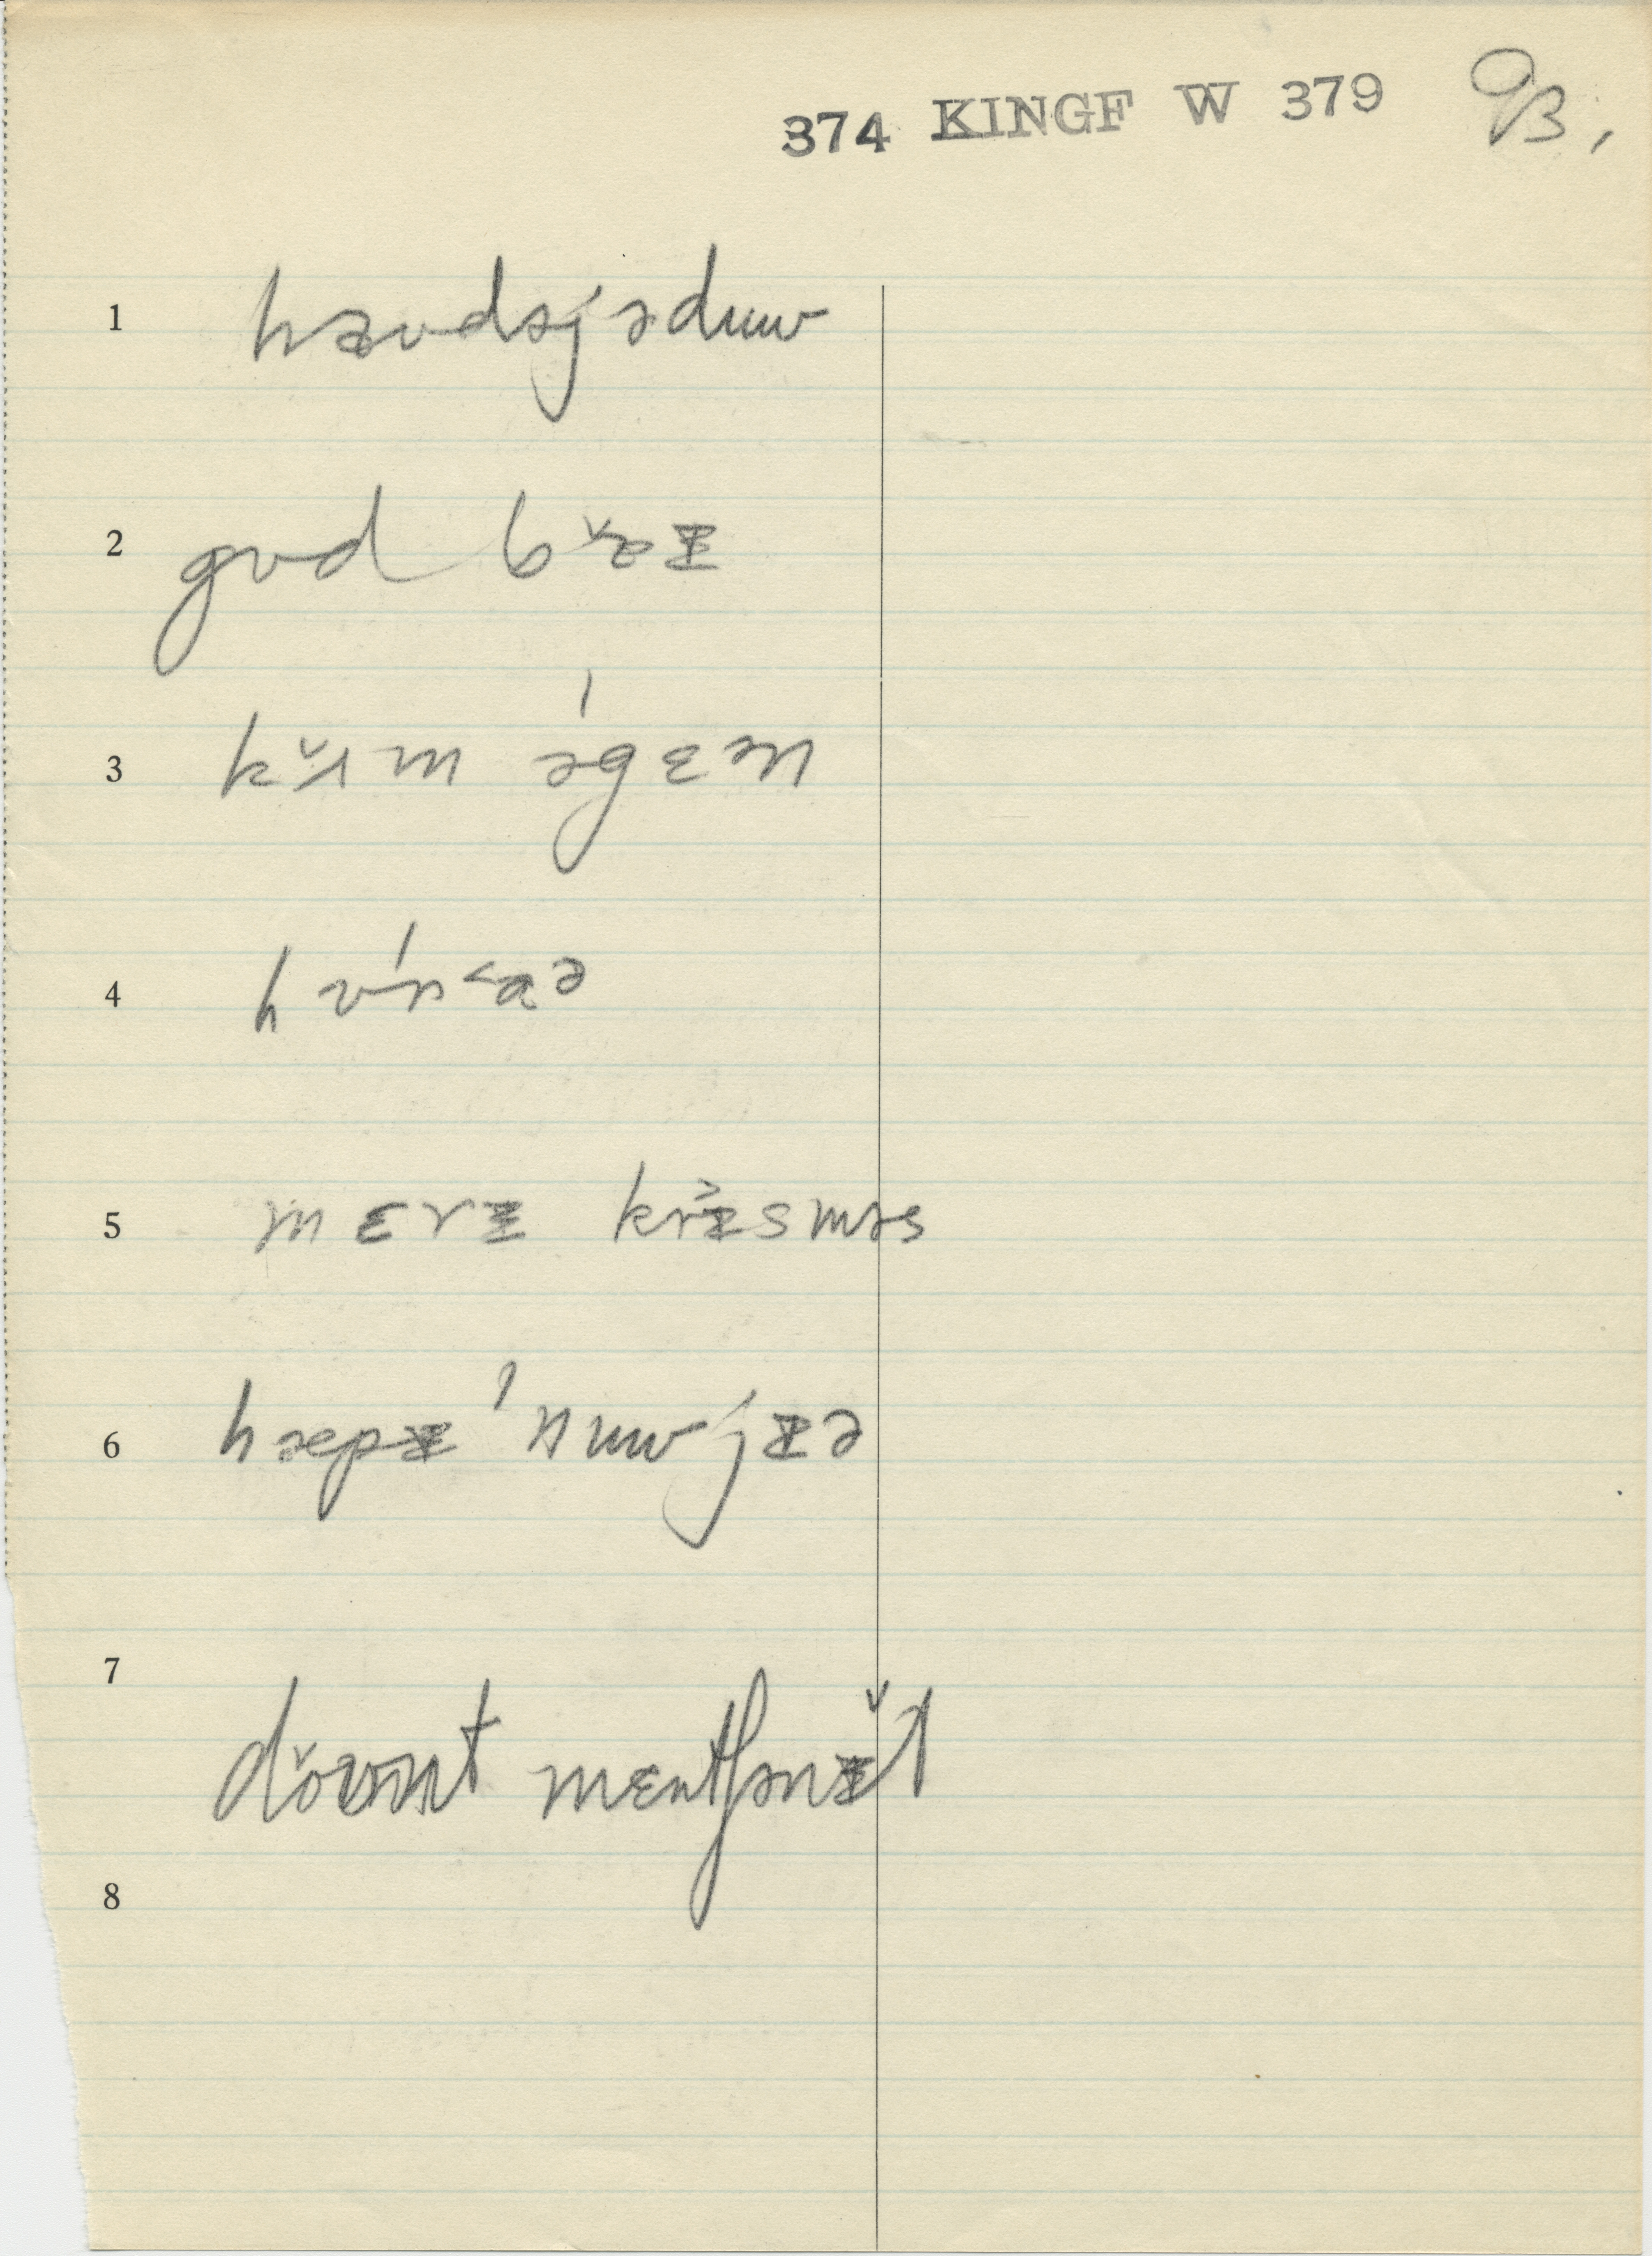 374 KINGF W 379 93,
1 hæʊdəjəduw
2 gʊd bˇaɪ
3 kˇʌm əgɛ́n
4 hʊ́rˇaə
5 mɛrɪ krɪ̌sməs
6 hæpɪ ˈnuwjɪə
7 dˇoʊnt mɛntʃənɪ̌t
8